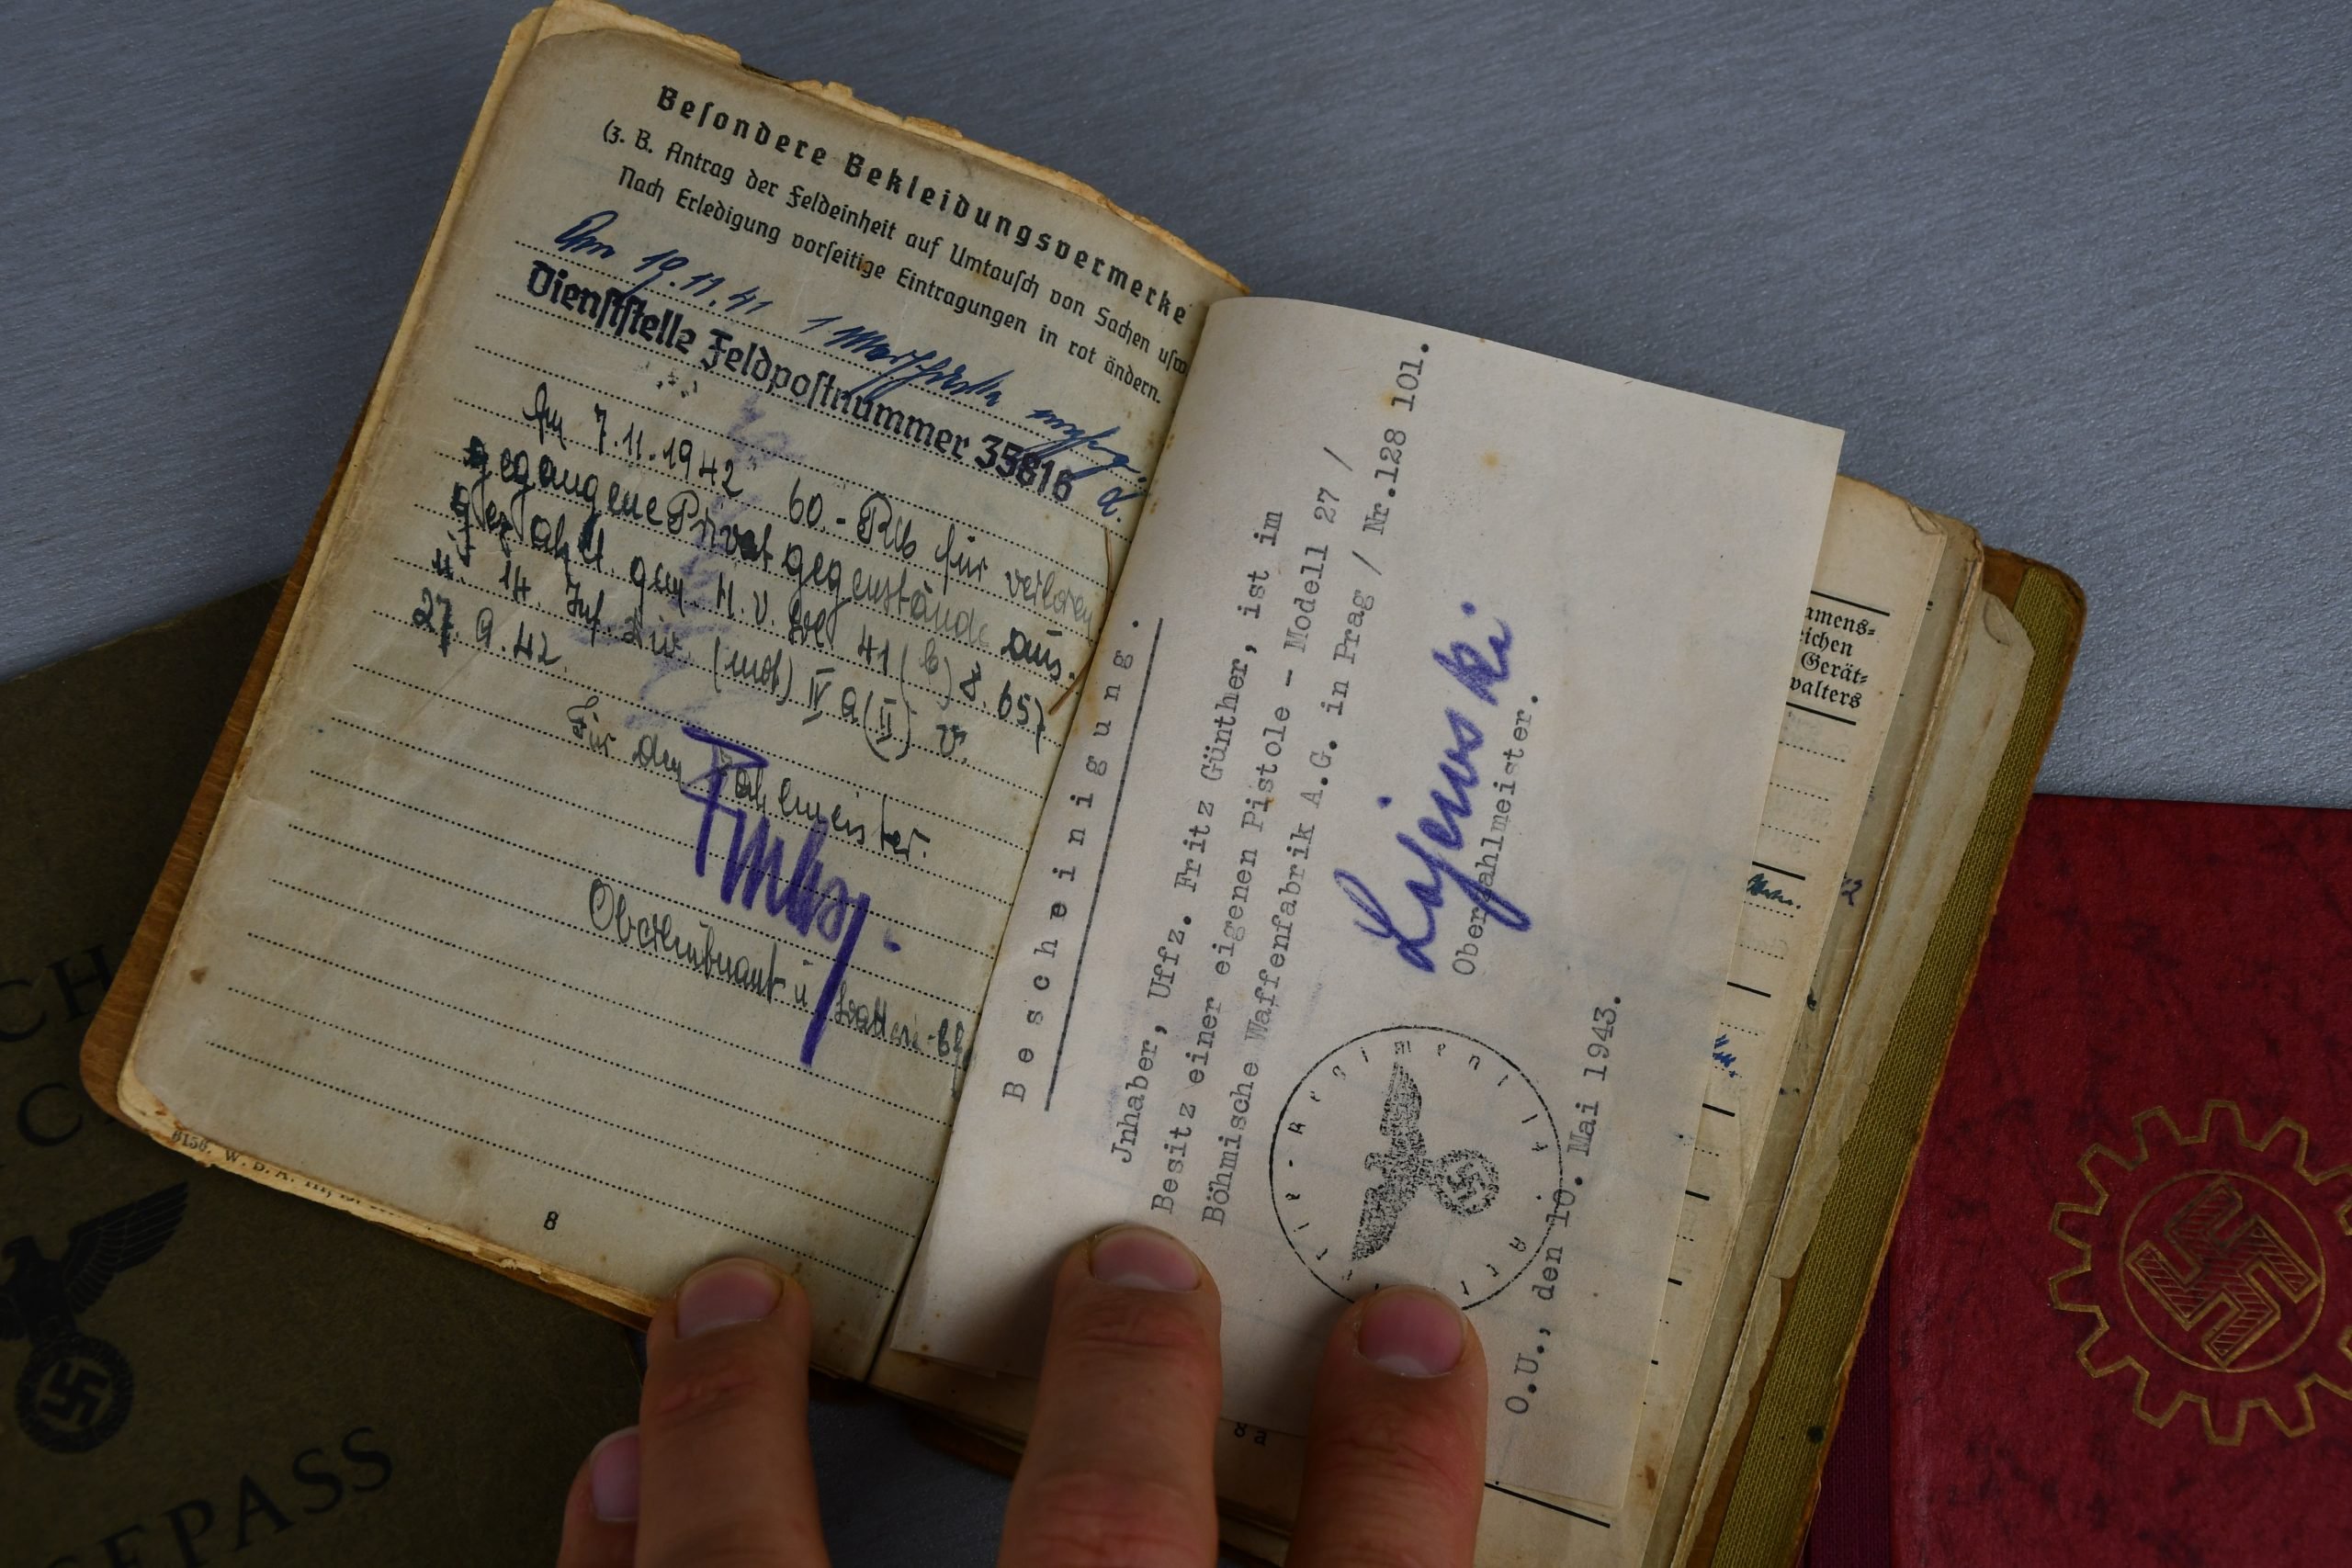 Besondere Bekleidungsvermerke
(z. B. Antrag der Feldeinheit auf Umtausch von Sachen usw
Nach Erledigung vorseitige Eintragungen in rot ändern.
Am 19.11.41 1
Dienststelle Feldpostnummer 35816
Am 7.11.1942 60.- RM für verloren
gegangene Privatgegenstände aus-
gezahlt gem. H.V. Bl 41 (b) Z. 657
u. 14. Inf. Div. (mot) IV a (II) v.
27. 9. 42.
Für den Zahlmeister.
Oberleutnant u.
8
Bescheinigung.
Jnhaber, Uffz. Fritz Günther, ist im
Besitz einer eigenen Pistole - Modell 27 /
Böhmische Waffenfabrik A.G. in Prag / Nr.128 101.
Oberzahlmeister.
O.U., den 10. Mai 1943.
amens-
eichen
Gerät-
valters
8 a
CH
SEPASS